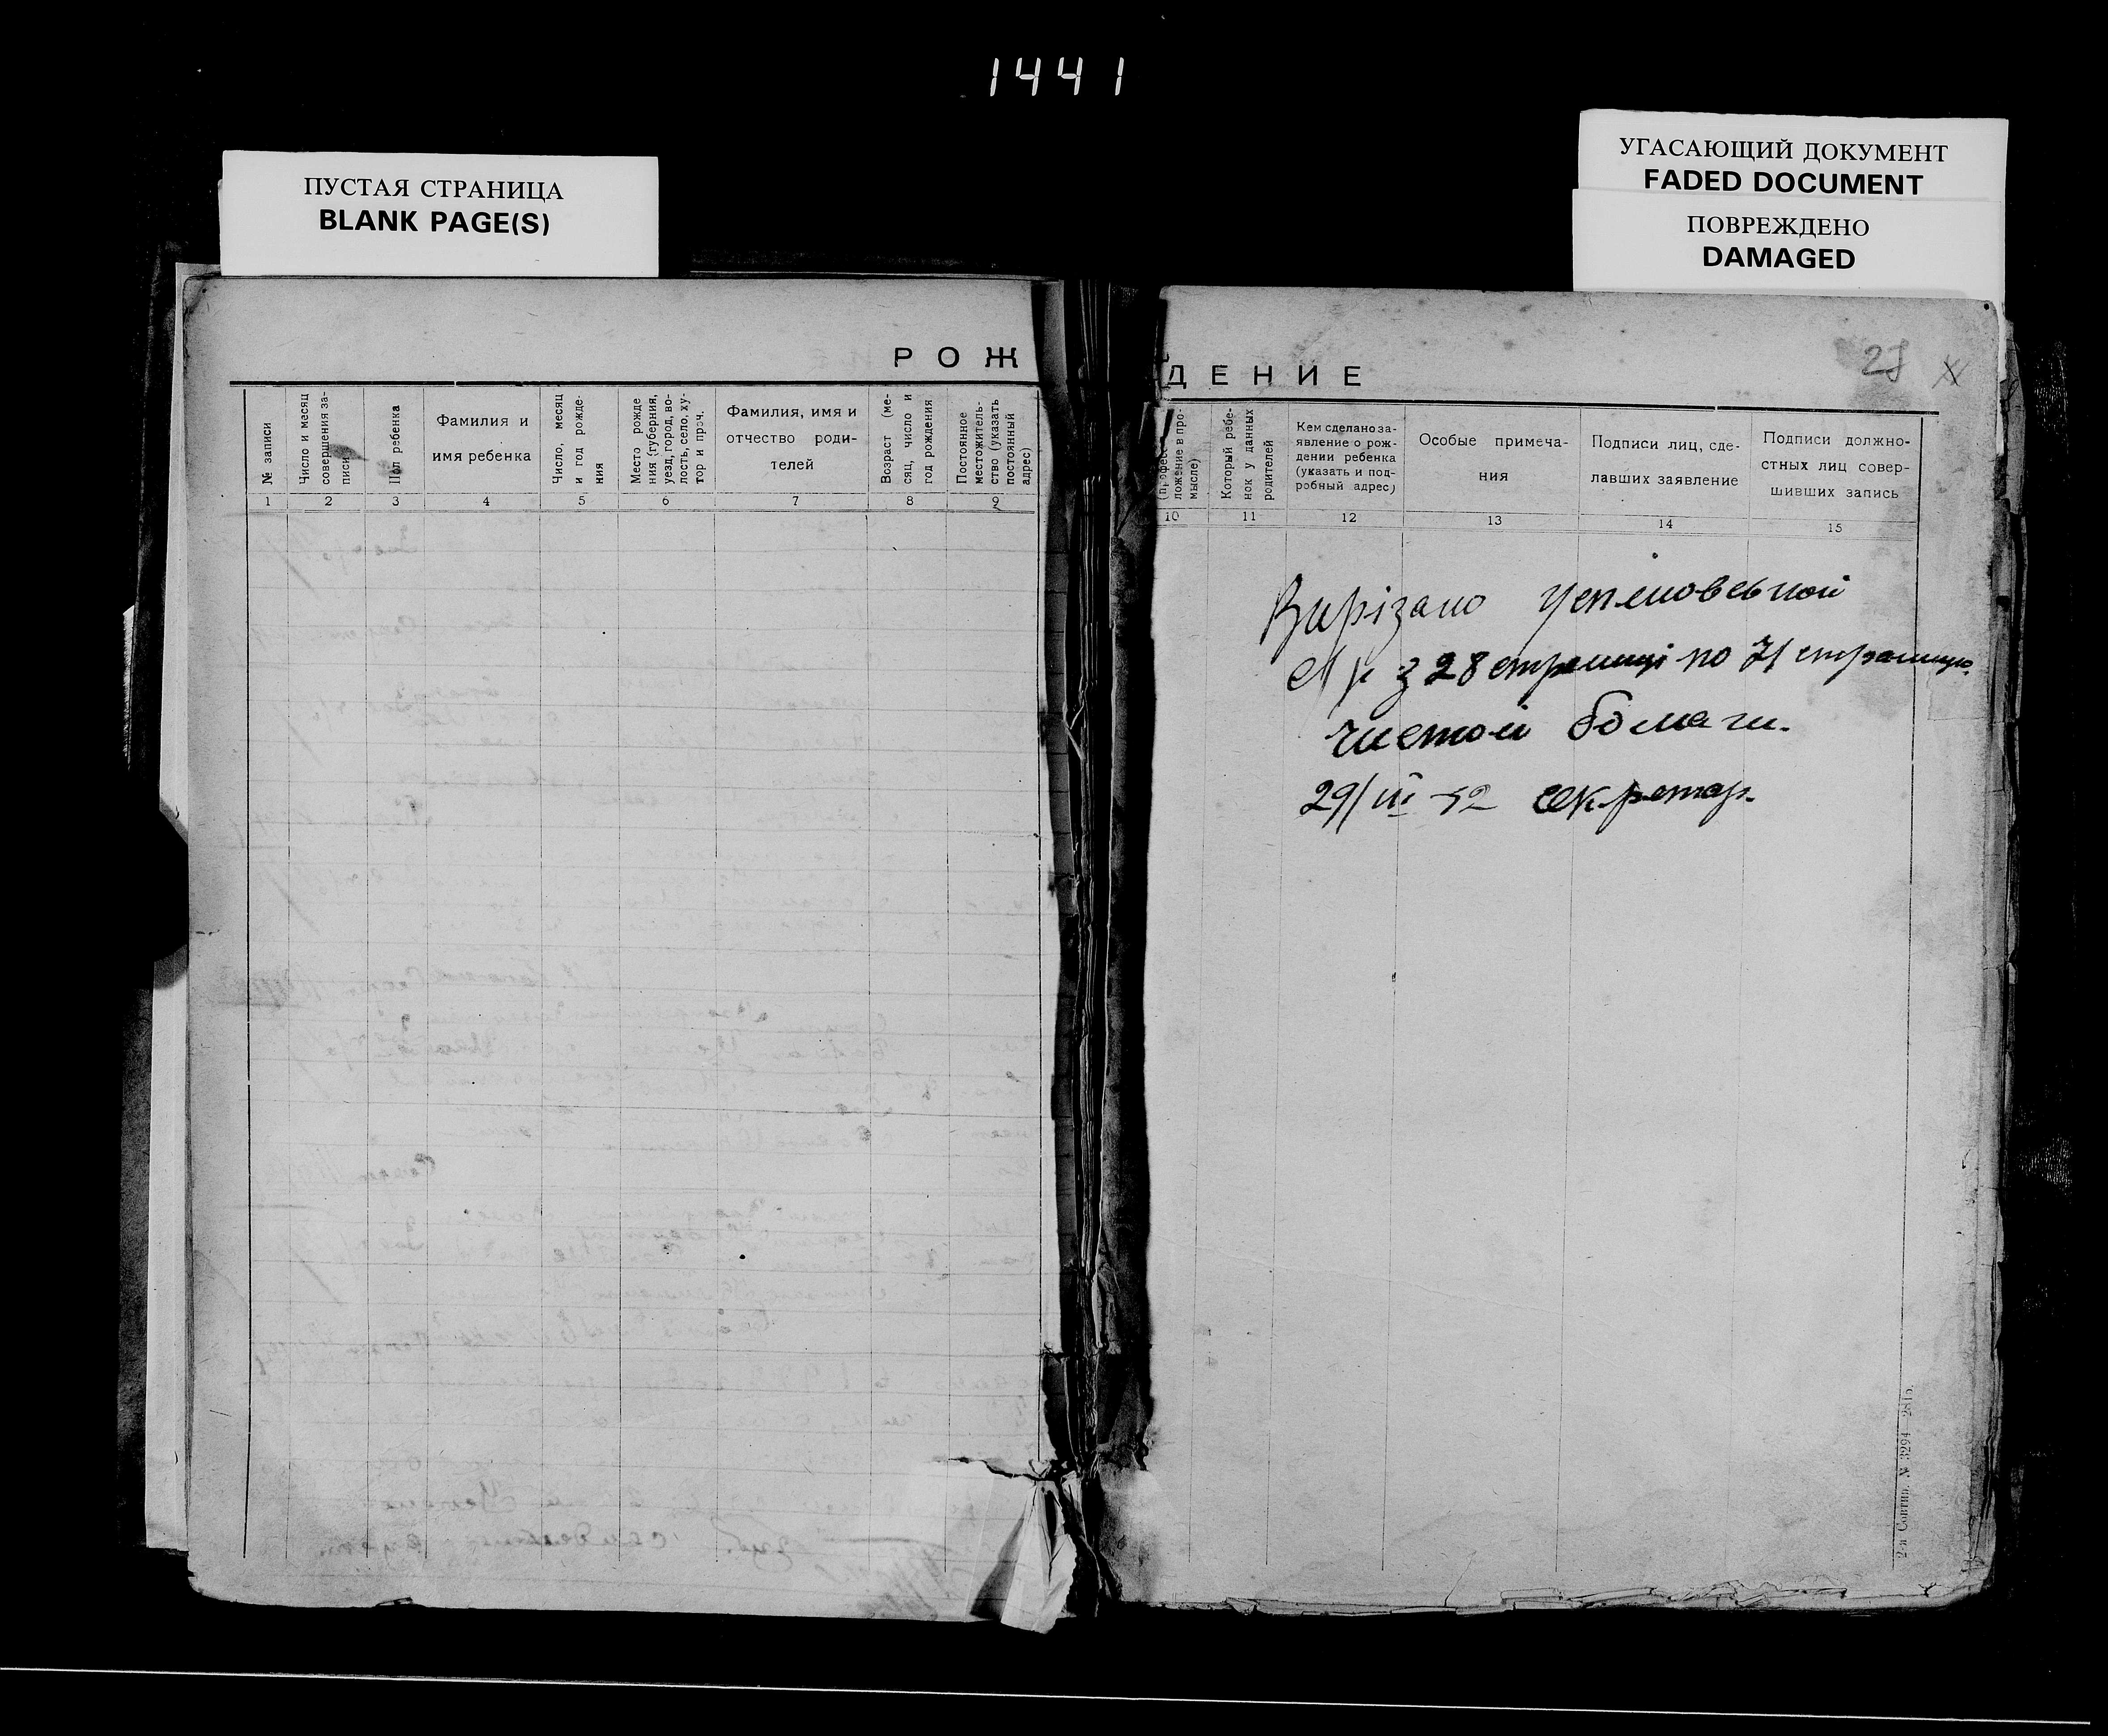 1441
ПУСТАЯ СТРАНИЦА
BLANK PAGE(S)
УГАСАЮЩИЙ ДОКУМЕНТ
FADED DOCUMENT
ПОВРЕЖДЕНО
DAMAGED
РОЖ
№ записи
Число и масяц
совершения за-
писи
Пол ребенка
Фамилия и
имя ребенка
Число, месяц
и год рожде-
ния
Место рожде
ния (губерния,
уезд, город, во-
лость, село, ху-
тор и проч.
Фамилия, имя и
отчество роди-
телей
Возраст (ме-
сяц, число и
год рождения
Постоянное
местожитель-
ство (указать
постоянный
адрес)
1 2 3 4 5 6 7 8 9
ДЕНИЕ
ложение в про-
мысле)
Который ребе-
нок у данных
родителей
Кем сделано за-
явление о рож-
дении ребенка
(указать и под-
робный адрес)
Особые примеча-
ния
Подписи лиц, сде-
лавших заявление
Подписи должно-
стных лиц совер-
шивших запись
10 11 12 13 14 15
Вирізано
з 28 страниці по 71 страницю
чистой бомаги.
29/III 52 секретар.
2-я Совтип. № 3294